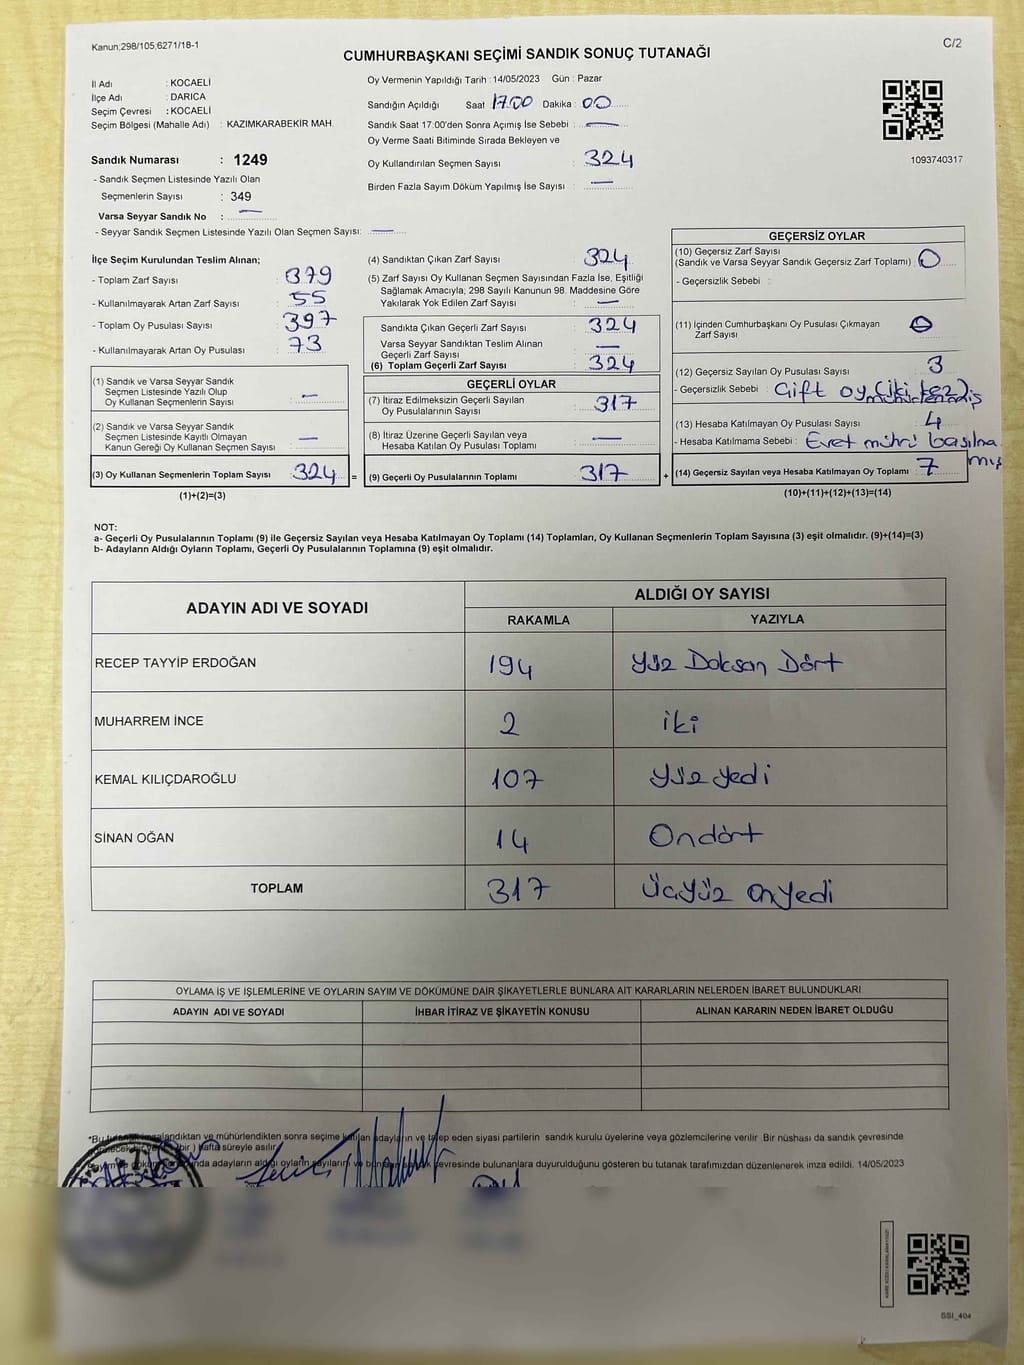 Kanun;298/105,6271/18-1
C/2
CUMHURBAŞKANI SEÇİMİ SANDIK SONUÇ TUTANAĞI
İl Adı : KOCAELİ
İlçe Adı : DARICA
Seçim Çevresi : KOCAELİ
Seçim Bölgesi (Mahalle Adı) : KAZIMKARABEKİR MAH.
Sandık Numarası : 1249
- Sandık Seçmen Listesinde Yazılı Olan
Seçmenlerin Sayısı : 349
Varsa Seyyar Sandık No : —
- Seyyar Sandık Seçmen Listesinde Yazılı Olan Seçmen Sayısı: —
Oy Vermenin Yapıldığı Tarih : 14/05/2023 Gün : Pazar
Sandığın Açıldığı Saat 17.00 Dakika : 00
Sandık Saat 17:00'den Sonra Açımış İse Sebebi : —
Oy Verme Saati Bitiminde Sırada Bekleyen ve
Oy Kullandırılan Seçmen Sayısı : 324
Birden Fazla Sayım Döküm Yapılmış İse Sayısı : —
1093740317
İlçe Seçim Kurulundan Teslim Alınan;
- Toplam Zarf Sayısı : 379
- Kullanılmayarak Artan Zarf Sayısı : 55
- Toplam Oy Pusulası Sayısı : 397
- Kullanılmayarak Artan Oy Pusulası : 73
(1) Sandık ve Varsa Seyyar Sandık
Seçmen Listesinde Yazılı Olup
Oy Kullanan Seçmenlerin Sayısı : —
(2) Sandık ve Varsa Seyyar Sandık
Seçmen Listesinde Kayıtlı Olmayan
Kanun Gereği Oy Kullanan Seçmen Sayısı : —
(3) Oy Kullanan Seçmenlerin Toplam Sayısı 324 =
(1)+(2)=(3)
(4) Sandıktan Çıkan Zarf Sayısı : 324
(5) Zarf Sayısı Oy Kullanan Seçmen Sayısından Fazla İse, Eşitliği
Sağlamak Amacıyla; 298 Sayılı Kanunun 98. Maddesine Göre
Yakılarak Yok Edilen Zarf Sayısı : —
Sandıkta Çıkan Geçerli Zarf Sayısı : 324
Varsa Seyyar Sandıktan Teslim Alınan
Geçerli Zarf Sayısı : —
(6) Toplam Geçerli Zarf Sayısı : 324
GEÇERLİ OYLAR
(7) İtiraz Edilmeksizin Geçerli Sayılan
Oy Pusulalarının Sayısı : 317
(8) İtiraz Üzerine Geçerli Sayılan veya
Hesaba Katılan Oy Pusulaları Toplamı : —
(9) Geçerli Oy Pusulalarının Toplamı 317 +
GEÇERSİZ OYLAR
(10) Geçersiz Zarf Sayısı
(Sandık ve Varsa Seyyar Sandık Geçersiz Zarf Toplamı) : 0
- Geçersizlik Sebebi :
(11) İçinden Cumhurbaşkanı Oy Pusulası Çıkmayan
Zarf Sayısı : 0
(12) Geçersiz Sayılan Oy Pusulası Sayısı : 3
- Geçersizlik Sebebi : Çift oy (iki kez)
mühürlenmiş
(13) Hesaba Katılmayan Oy Pusulası Sayısı : 4
- Hesaba Katılmama Sebebi : Evet mührü basılma
mış
(14) Geçersiz Sayılan veya Hesaba Katılmayan Oy Toplamı : 7
(10)+(11)+(12)+(13)=(14)
NOT:
a- Geçerli Oy Pusulalarının Toplamı (9) ile Geçersiz Sayılan veya Hesaba Katılmayan Oy Toplamı (14) Toplamları, Oy Kullanan Seçmenlerin Toplam Sayısına (3) eşit olmalıdır. (9)+(14)=(3)
b- Adayların Aldığı Oyların Toplamı, Geçerli Oy Pusulalarının Toplamına (9) eşit olmalıdır.
ADAYIN ADI VE SOYADI ALDIĞI OY SAYISI
RAKAMLA YAZIYLA
RECEP TAYYİP ERDOĞAN 194 Yüz Doksan Dört
MUHARREM İNCE 2 iki
KEMAL KILIÇDAROĞLU 107 Yüz yedi
SİNAN OĞAN 14 Ondört
TOPLAM 317 Üçyüz onyedi
OYLAMA İŞ VE İŞLEMLERİNE VE OYLARIN SAYIM VE DÖKÜMÜNE DAİR ŞİKAYETLERLE BUNLARA AİT KARARLARIN NELERDEN İBARET BULUNDUKLARI
ADAYIN ADI VE SOYADI İHBAR İTİRAZ VE ŞİKAYETİN KONUSU ALINAN KARARIN NEDEN İBARET OLDUĞU
*Bu mühürlendikten sonra seçime katılan adayların ve talep eden siyasi partilerin sandık kurulu üyelerine veya gözlemcilerine verilir. Bir nüshası da sandık çevresinde
bir ) hafta süreyle asılır
adayların aldığı oyların sayılarını çevresinde bulunanlara duyurulduğunu gösteren bu tutanak tarafımızdan düzenlenerek imza edildi. 14/05/2023
SSI_404